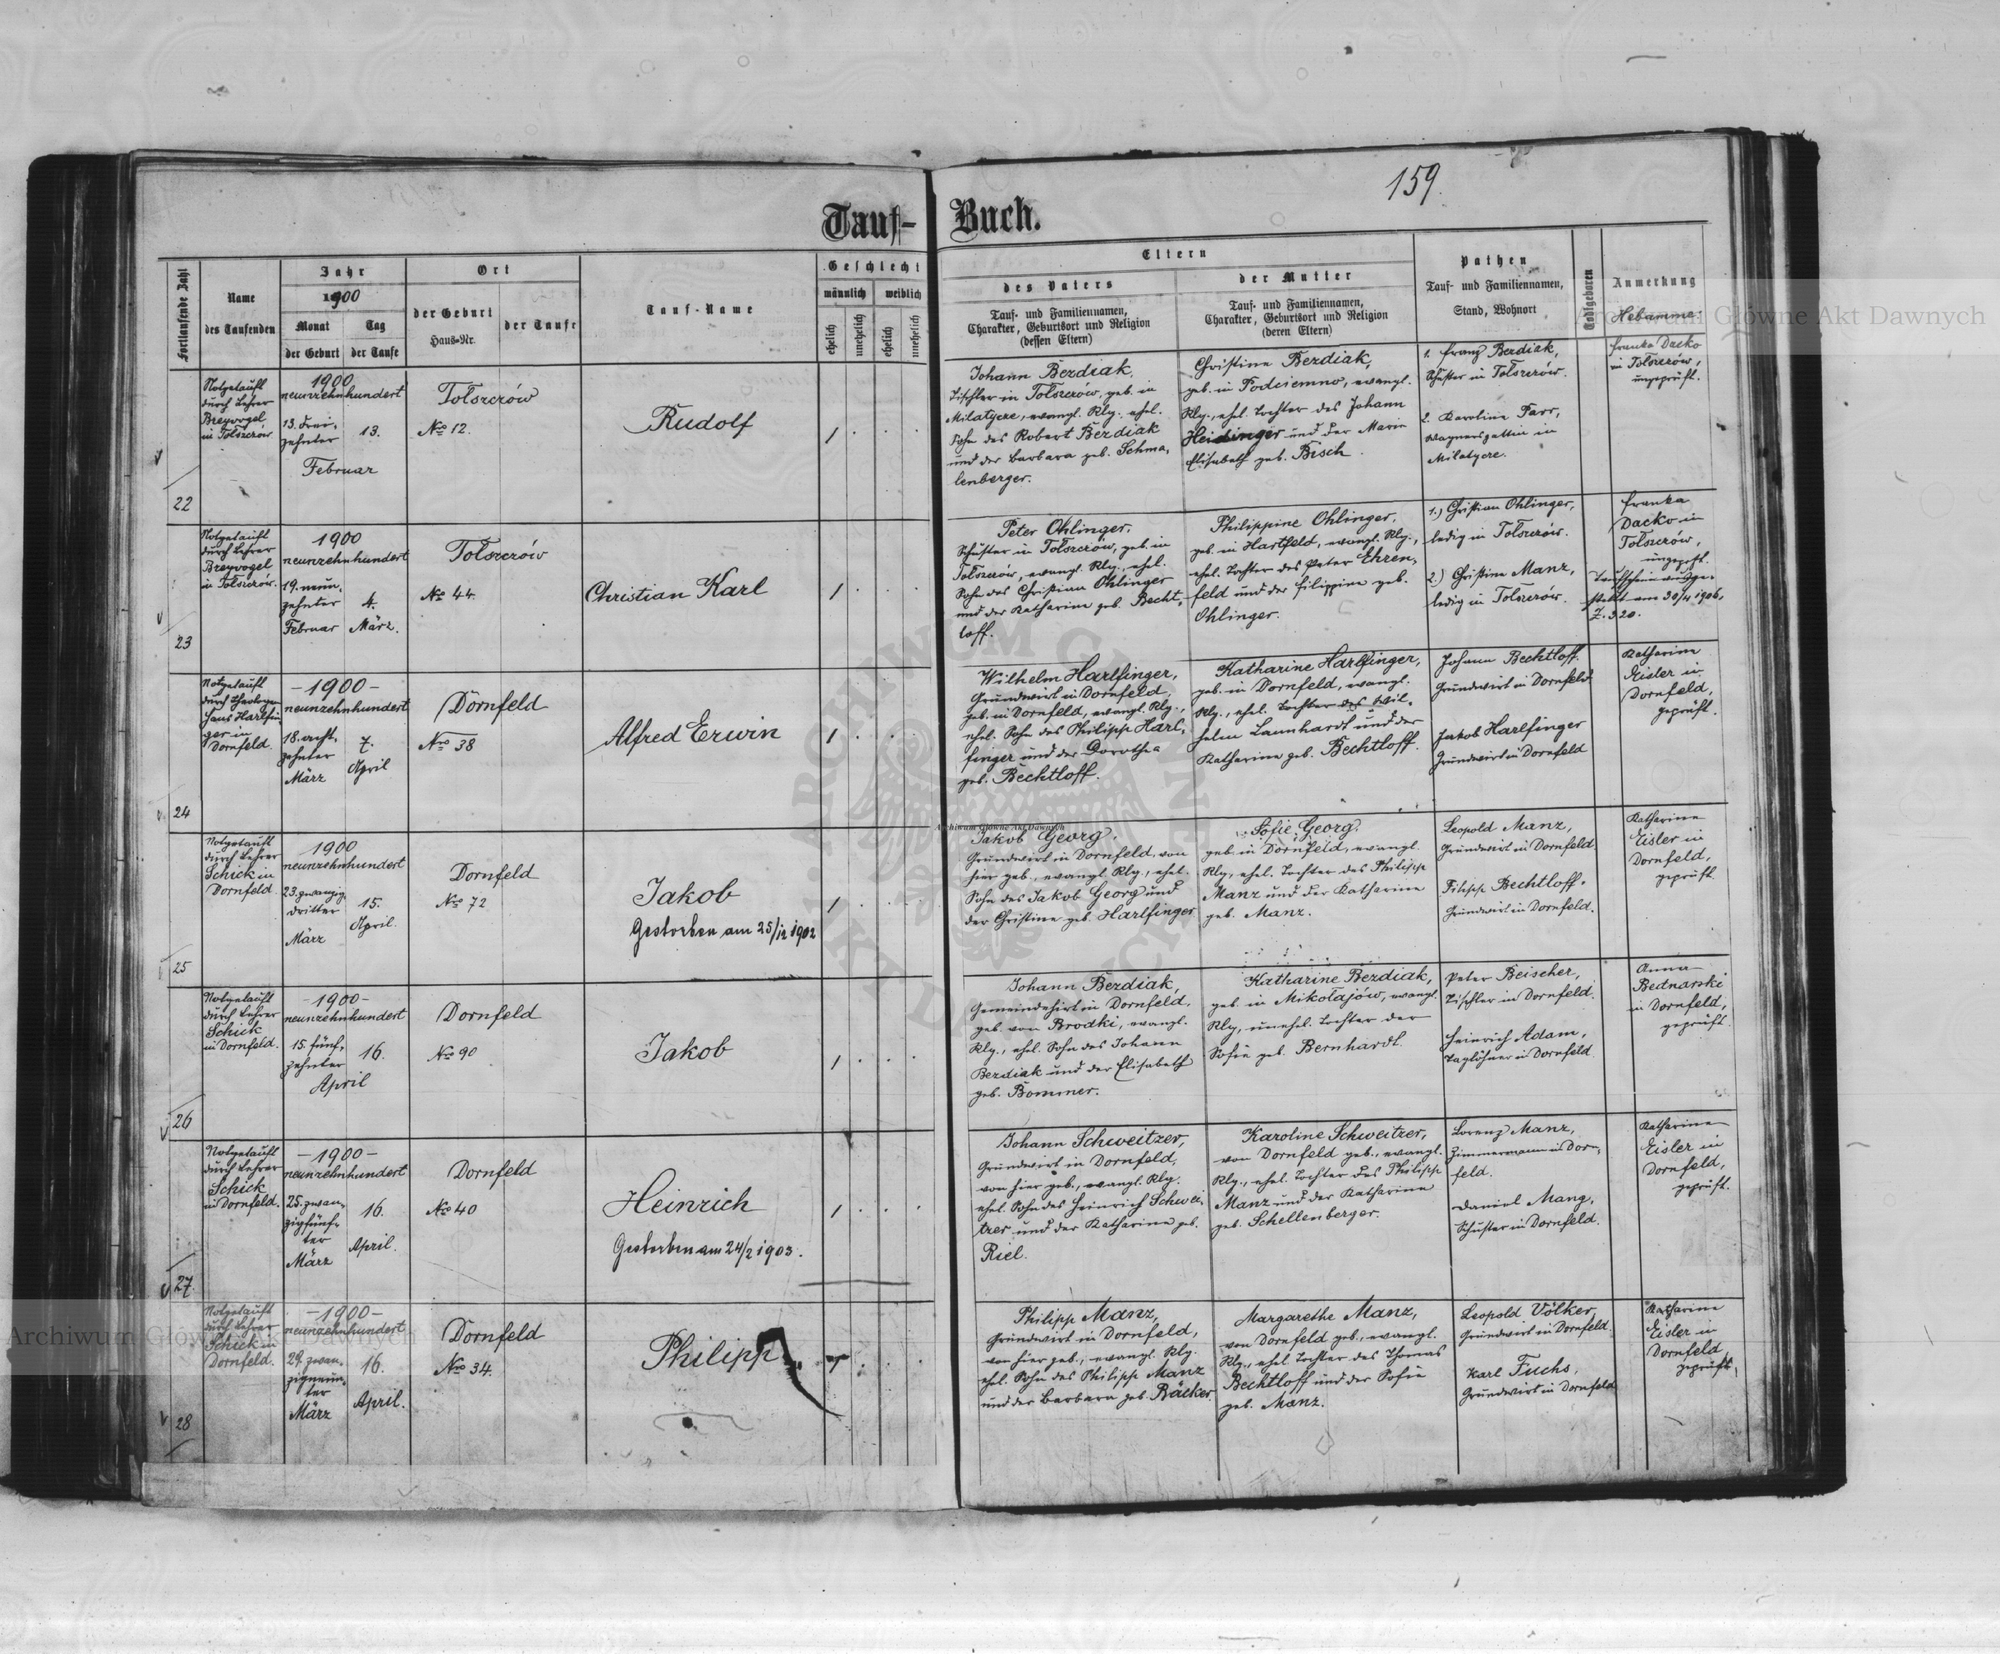 159.
Tauf-Buch.
Fortlaufende Zahl
Name
des Taufenden
Jahr
1900
Monat
der Geburt
Tag
der Taufe
Ort
der Geburt
Haus-Nr.
der Taufe
Tauf-Name
Geschlecht
männlich
weiblich
ehelich
unehelich
ehelich
unehelich
Eltern
des Vaters
Tauf- und Familiennamen,
Charakter, Geburtsort und Religion
(dessen Eltern)
der Mutter
Tauf- und Familiennamen,
Charakter, Geburtsort und Religion
(deren Eltern)
Pathen
Tauf- und Familiennamen,
Stand, Wohnort
Todtgeboren
Anmerkung
Hebamme:
22
Notgetauft
durch Lehrer
Breyvogel
in Tolszczów
1900
neunzehnhundert
13. drei-
zehnter
Februar
13.
Tolszczów
No 12.
Rudolf
1
Johann Bezdiak,
Tischler in Tolszczów, geb. in
Milatycze, evangl. Rlg., ehel.
Sohn des Robert Bezdiak
und der Barbara geb. Schma-
lenberger.
Christine Bezdiak,
geb. in Podciemno, evangl.
Rlg., ehel. Tochter des Johann
Heidinger und der Maria
Elisabeth geb. Bisch.
1. Franz Bezdiak,
Schuster in Tolszczów.
2. Karoline Farr,
Wagnersgattin in
Milatycze.
Franka Dacko
in Tolszczów,
ungeprüft.
23
Notgetauft
durch Lehrer
Breyvogel
in Tolszczów.
1900
neunzehnhundert
19. neun-
zehnter
Februar
4.
März.
Tolszczów
No 44.
Christian Karl
1
Peter Ohlinger,
Schuster in Tolszczów, geb. in
Tolszczów, evangl. Rlg., ehel.
Sohn des Christian Ohlinger
und der Katharina geb. Becht-
loff.
Philippine Ohlinger,
geb. in Hartfeld, evangl. Rlg.,
ehel. Tochter des Peter Ehren-
feld und der Filippine geb.
Ohlinger.
1.) Christian Ohlinger,
ledig in Tolszczów.
2.) Christine Manz,
ledig in Tolszczów.
Franka
Dacko in
Tolszczów,
ungeprft.
Taufschein ausge-
stellt am 30/4 1906,
Z. 320.
24
Notgetauft
durch Theologe
Hans Harlfin-
ger in
Dornfeld.
-1900-
neunzehnhundert
18. acht-
zehnter
März
7.
April
Dornfeld
No 38
Alfred Erwin
1
Wilhelm Harlfinger,
Grundwirt in Dornfeld,
geb. in Dornfeld, evangl. Rlg.,
ehel. Sohn des Philipp Harl-
finger und der Dorothea
geb. Bechtloff.
Katharine Harlfinger,
geb. in Dornfeld, evangl.
Rlg., ehel. Tochter des Wil-
helm Lannhardt und der
Katharina geb. Bechtloff.
Johann Bechtloff
Grundwirt in Dornfeld
Jakob Harlfinger
Grundwirt in Dornfeld
Katharina
Eisler in
Dornfeld,
geprüft.
25
Notgetauft
durch Lehrer
Schick in
Dornfeld.
1900
neunzehnhundert
23. zwanzig-
dritter
März
15.
April.
Dornfeld
No 72
Jakob
Gestorben am 25/12 1902
1
Jakob Georg.
Grundwirt in Dornfeld, von
hier geb., evangl. Rlg., ehel.
Sohn des Jakob Georg und
der Christine geb. Harlfinger
Sofie Georg.
geb. in Dornfeld, evangl.
Rlg., ehel. Tochter des Philipp
Manz und der Katharina
geb. Manz.
Leopold Manz,
Grundwirt in Dornfeld
Filipp Bechtloff.
Grundwirt in Dornfeld.
Katharina
Eisler in
Dornfeld,
geprüft
26
Notgetauft
durch Lehrer
Schick
in Dornfeld.
-1900-
neunzehnhundert
15. fünf-
zehnter
April
16.
Dornfeld
No 90
Jakob
1
Johann Bezdiak,
Gemeindehirt in Dornfeld,
geb. von Brodki, evangl.
Rlg., ehel. Sohn des Johann
Bezdiak und der Elisabeth
geb. Bommer.
Katharine Bezdiak,
geb. in Mikołajów, evangl.
Rlg., unehel. Tochter der
Sofie geb. Bernhardt.
Peter Beischer,
Tischler in Dornfeld.
Heinrich Adam,
Taglöhner in Dornfeld
Anna
Bednarski
in Dornfeld,
geprüft
27
Notgetauft
durch Lehrer
Schick
in Dornfeld.
-1900-
neunzehnhundert
25. zwan-
zigfünf-
ter
März
16.
April.
Dornfeld
No 40
Heinrich
Gestorben am 24/2 1903.
1
Johann Schweitzer,
Grundwirt in Dornfeld,
von hier geb., evangl. Rlg.
ehel. Sohn des Heinrich Schwei-
tzer und der Katharina geb.
Riel.
Karoline Schweitzer,
von Dornfeld geb., evangl.
Rlg., ehel. Tochter des Philipp
Manz und der Katharina
geb. Schellenberger.
Lorenz Manz,
Zimmermann in Dorn-
feld.
Daniel Manz,
Schuster in Dornfeld.
Katharina
Eisler in
Dornfeld,
geprüft.
28
Notgetauft
durch Lehrer
Schick in
Dornfeld.
-1900-
neunzehnhundert
29. zwan-
zigneun-
ter
März
16.
April.
Dornfeld
No 34.
Philipp
1
Philipp Manz,
Grundwirt in Dornfeld,
von hier geb., evangl. Rlg.
ehel. Sohn des Philipp Manz
und der Barbara geb. Bäcker.
Margarethe Manz,
von Dornfeld geb., evangl.
Rlg., ehel. Tochter des Thomas
Bechtloff und der Sofie
geb. Manz.
Leopold Völker,
Grundwirt in Dornfeld.
Karl Fuchs,
Grundwirt in Dornfeld
Katharina
Eisler in
Dornfeld
geprüft.
Archiwum Główne Akt Dawnych
Archiwum Główne Akt Dawnych
Archiwum Główne Akt Dawnych